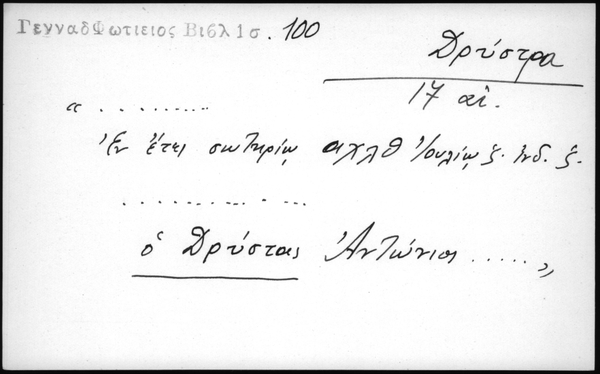 ΓενναδΦωτιειος Βιβλ 1σ. 100
Δρύστρα
17 αἰ.
“ . . . . . . . . . .
Ἐν ἔτει σωτηρίῳ αχλθ Ἰουλίῳ ζ. ἰνδ. ζ.
. . . . . . . . . . . .
ὁ Δρύστας Ἀντώνιος ..... „